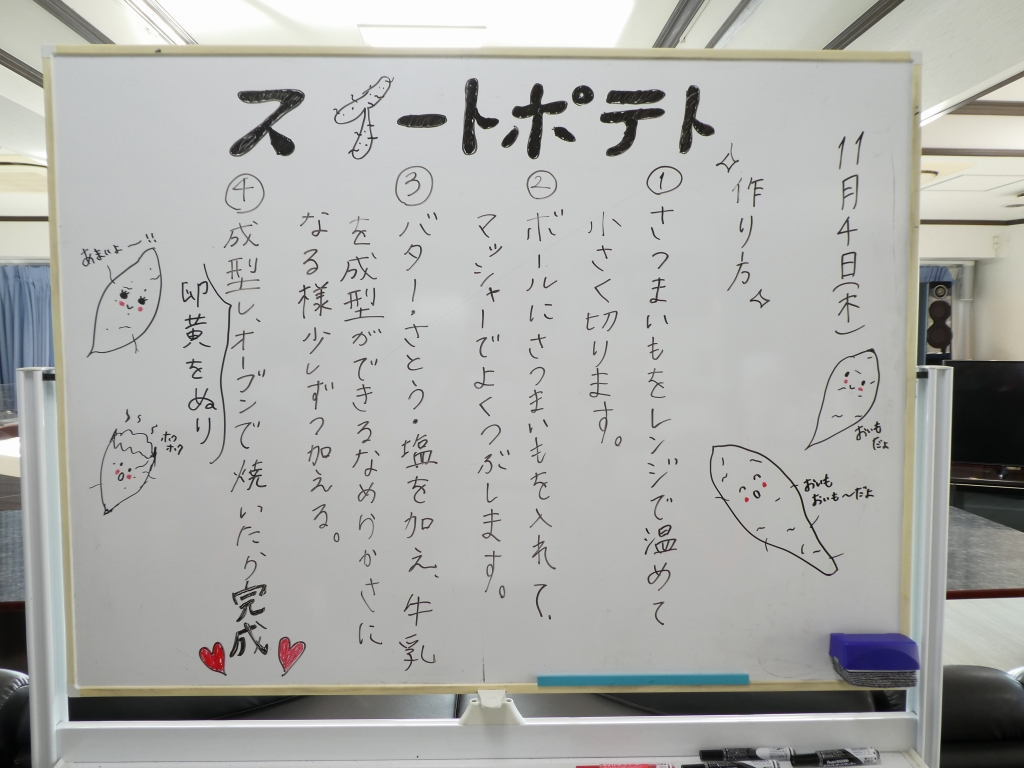 スイートポテト
11月4日(木)
作り方
① さつまいもをレンジで温めて
小さく切ります。
② ボールにさつまいもを入れて、
マッシャーでよくつぶします。
③ バター・さとう・塩を加え、牛乳
を成型ができるなめらかさに
なる様少しずつ加える。
④ 成型し、オーブンで焼いたら完成
卵黄をぬり
おいも
だよ
おいも
おいも〜だよ
あまいよ〜!!
ホク
ホク